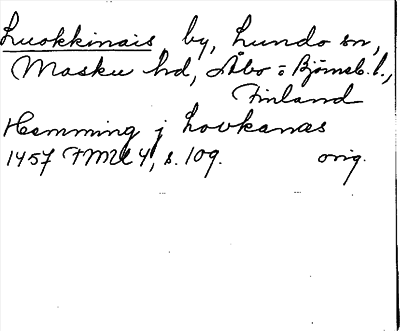 Luokkinais by, Lundo sn,
Masku hd, Åbo o Björneb. l.,
Finland
Hemming j Lovkanæs
1457 FMU 4, s. 109. orig.